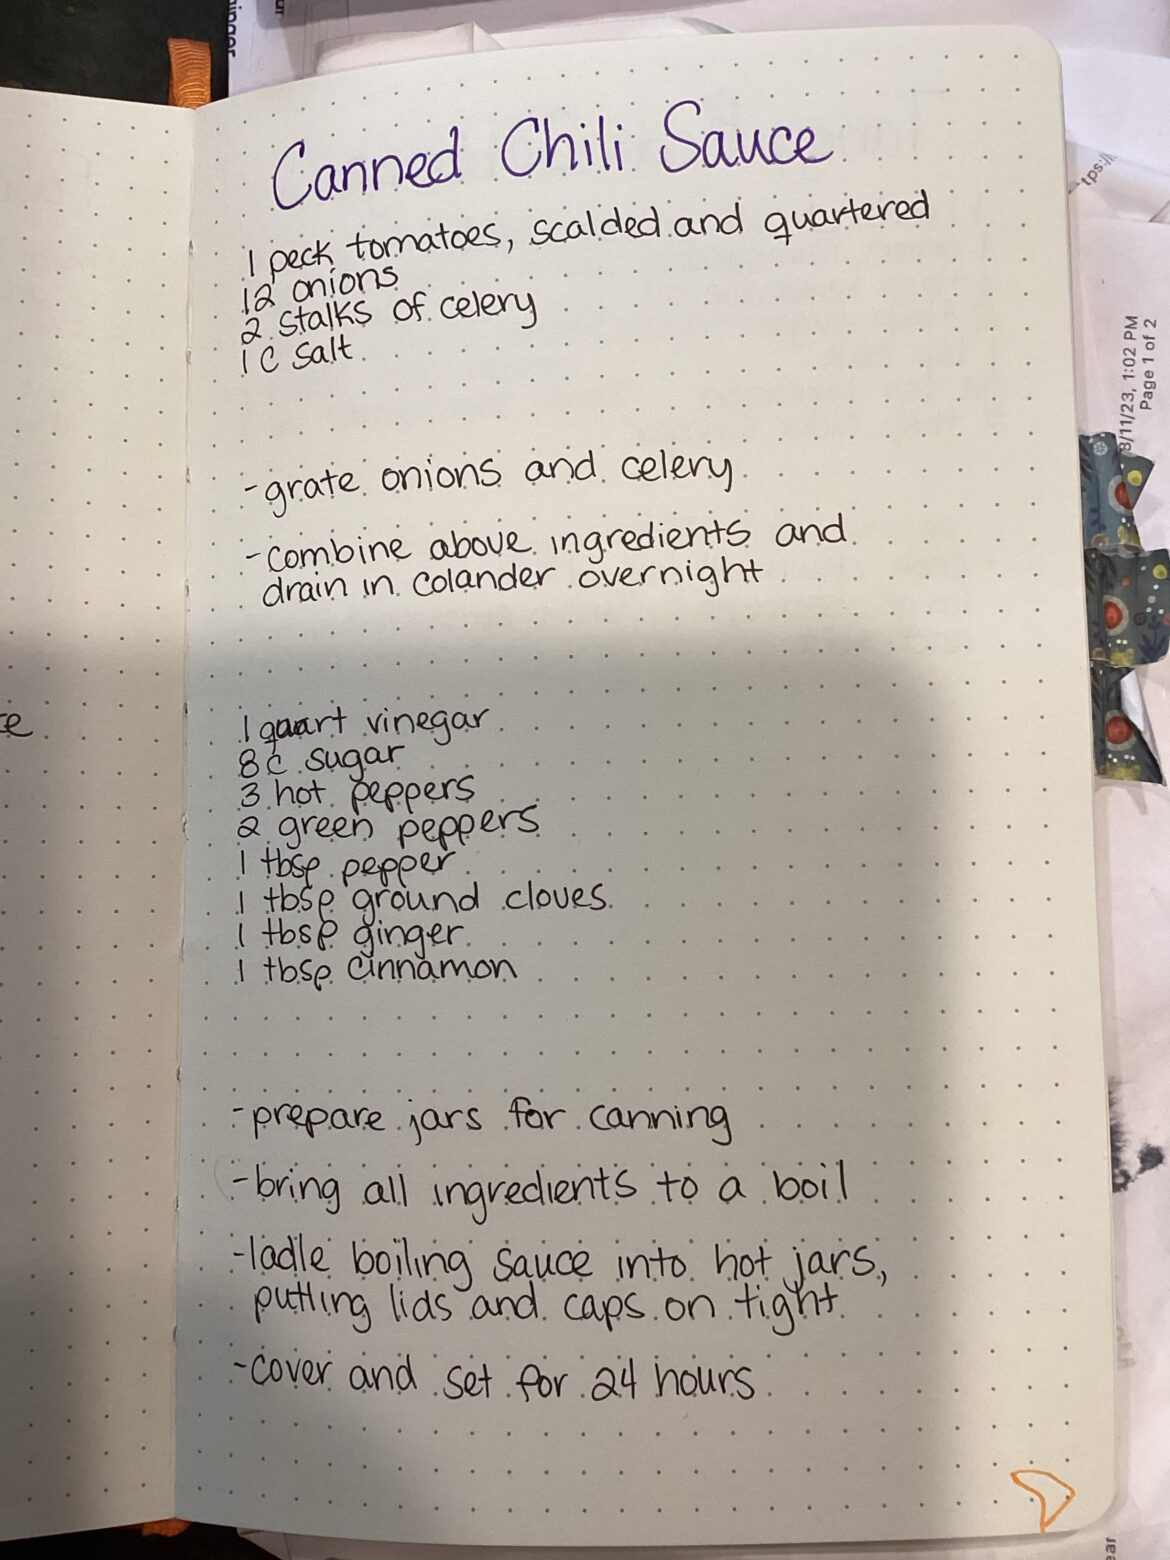 Canned Chili Sauce
1 peck tomatoes, scalded and quartered
12 onions
2 stalks of celery
1 C salt
-grate onions and celery
-combine above ingredients and
drain in colander overnight
1 quart vinegar
8 c sugar
3 hot peppers
2 green peppers
1 tbsp pepper
1 tbsp ground cloves
1 tbsp ginger
1 tbsp cinnamon
-prepare jars for canning
-bring all ingredients to a boil
-ladle boiling sauce into hot jars,
putting lids and caps on tight
-cover and set for 24 hours
tps:/
3/11/23, 1:02 PM
Page 1 of 2